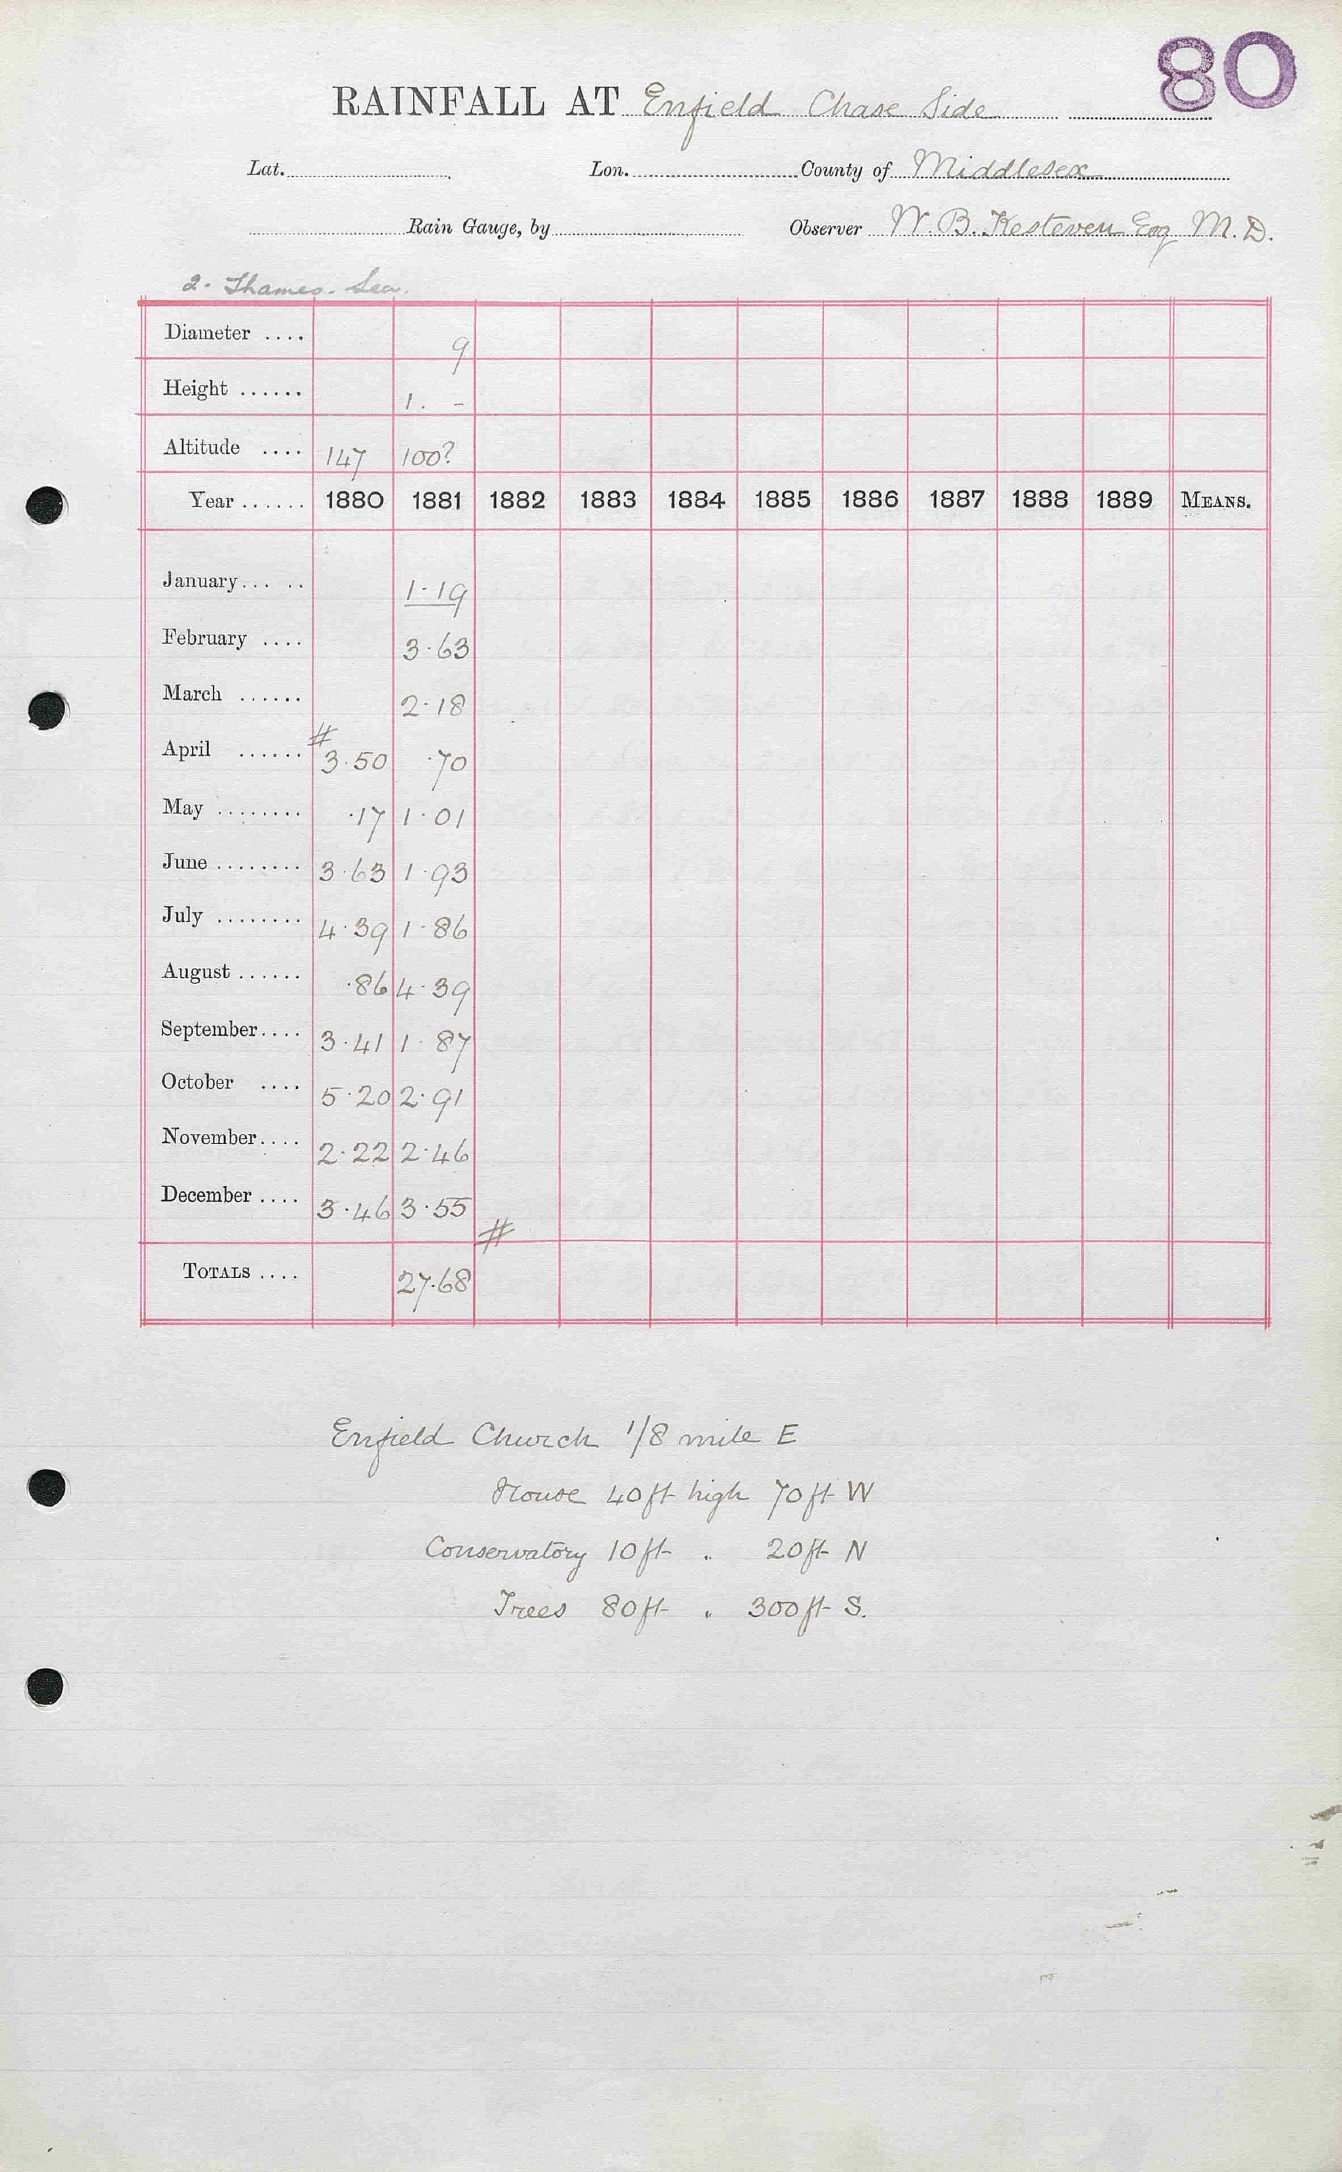 80
RAINFALL AT Enfield Chase Side
Lat. Lon. County of Middlesex
Rain Gauge, by Observer W. B. Kesteven Esq M. D.
2. Thames. Sea.
Diameter .... 9
Height ...... 1. -
Altitude .... 147 100?
Year ...... 1880 1881 1882 1883 1884 1885 1886 1887 1888 1889 MEANS.
January... .. 1.19
February .... 3.63
March ...... 2.18
April ...... # 3.50 .70
May ........ .17 1.01
June ........ 3.63 1.93
July ........ 4.39 1.86
August ...... .86 4.39
September.... 3.41 1.87
October .... 5.20 2.91
November.... 2.22 2.46
December .... 3.46 3.55 #
TOTALS .... 27.68
Enfield Church 1/8 mile E
House 40ft high 70ft W
Conservatory 10ft " 20ft N
Trees 80ft " 300ft S.